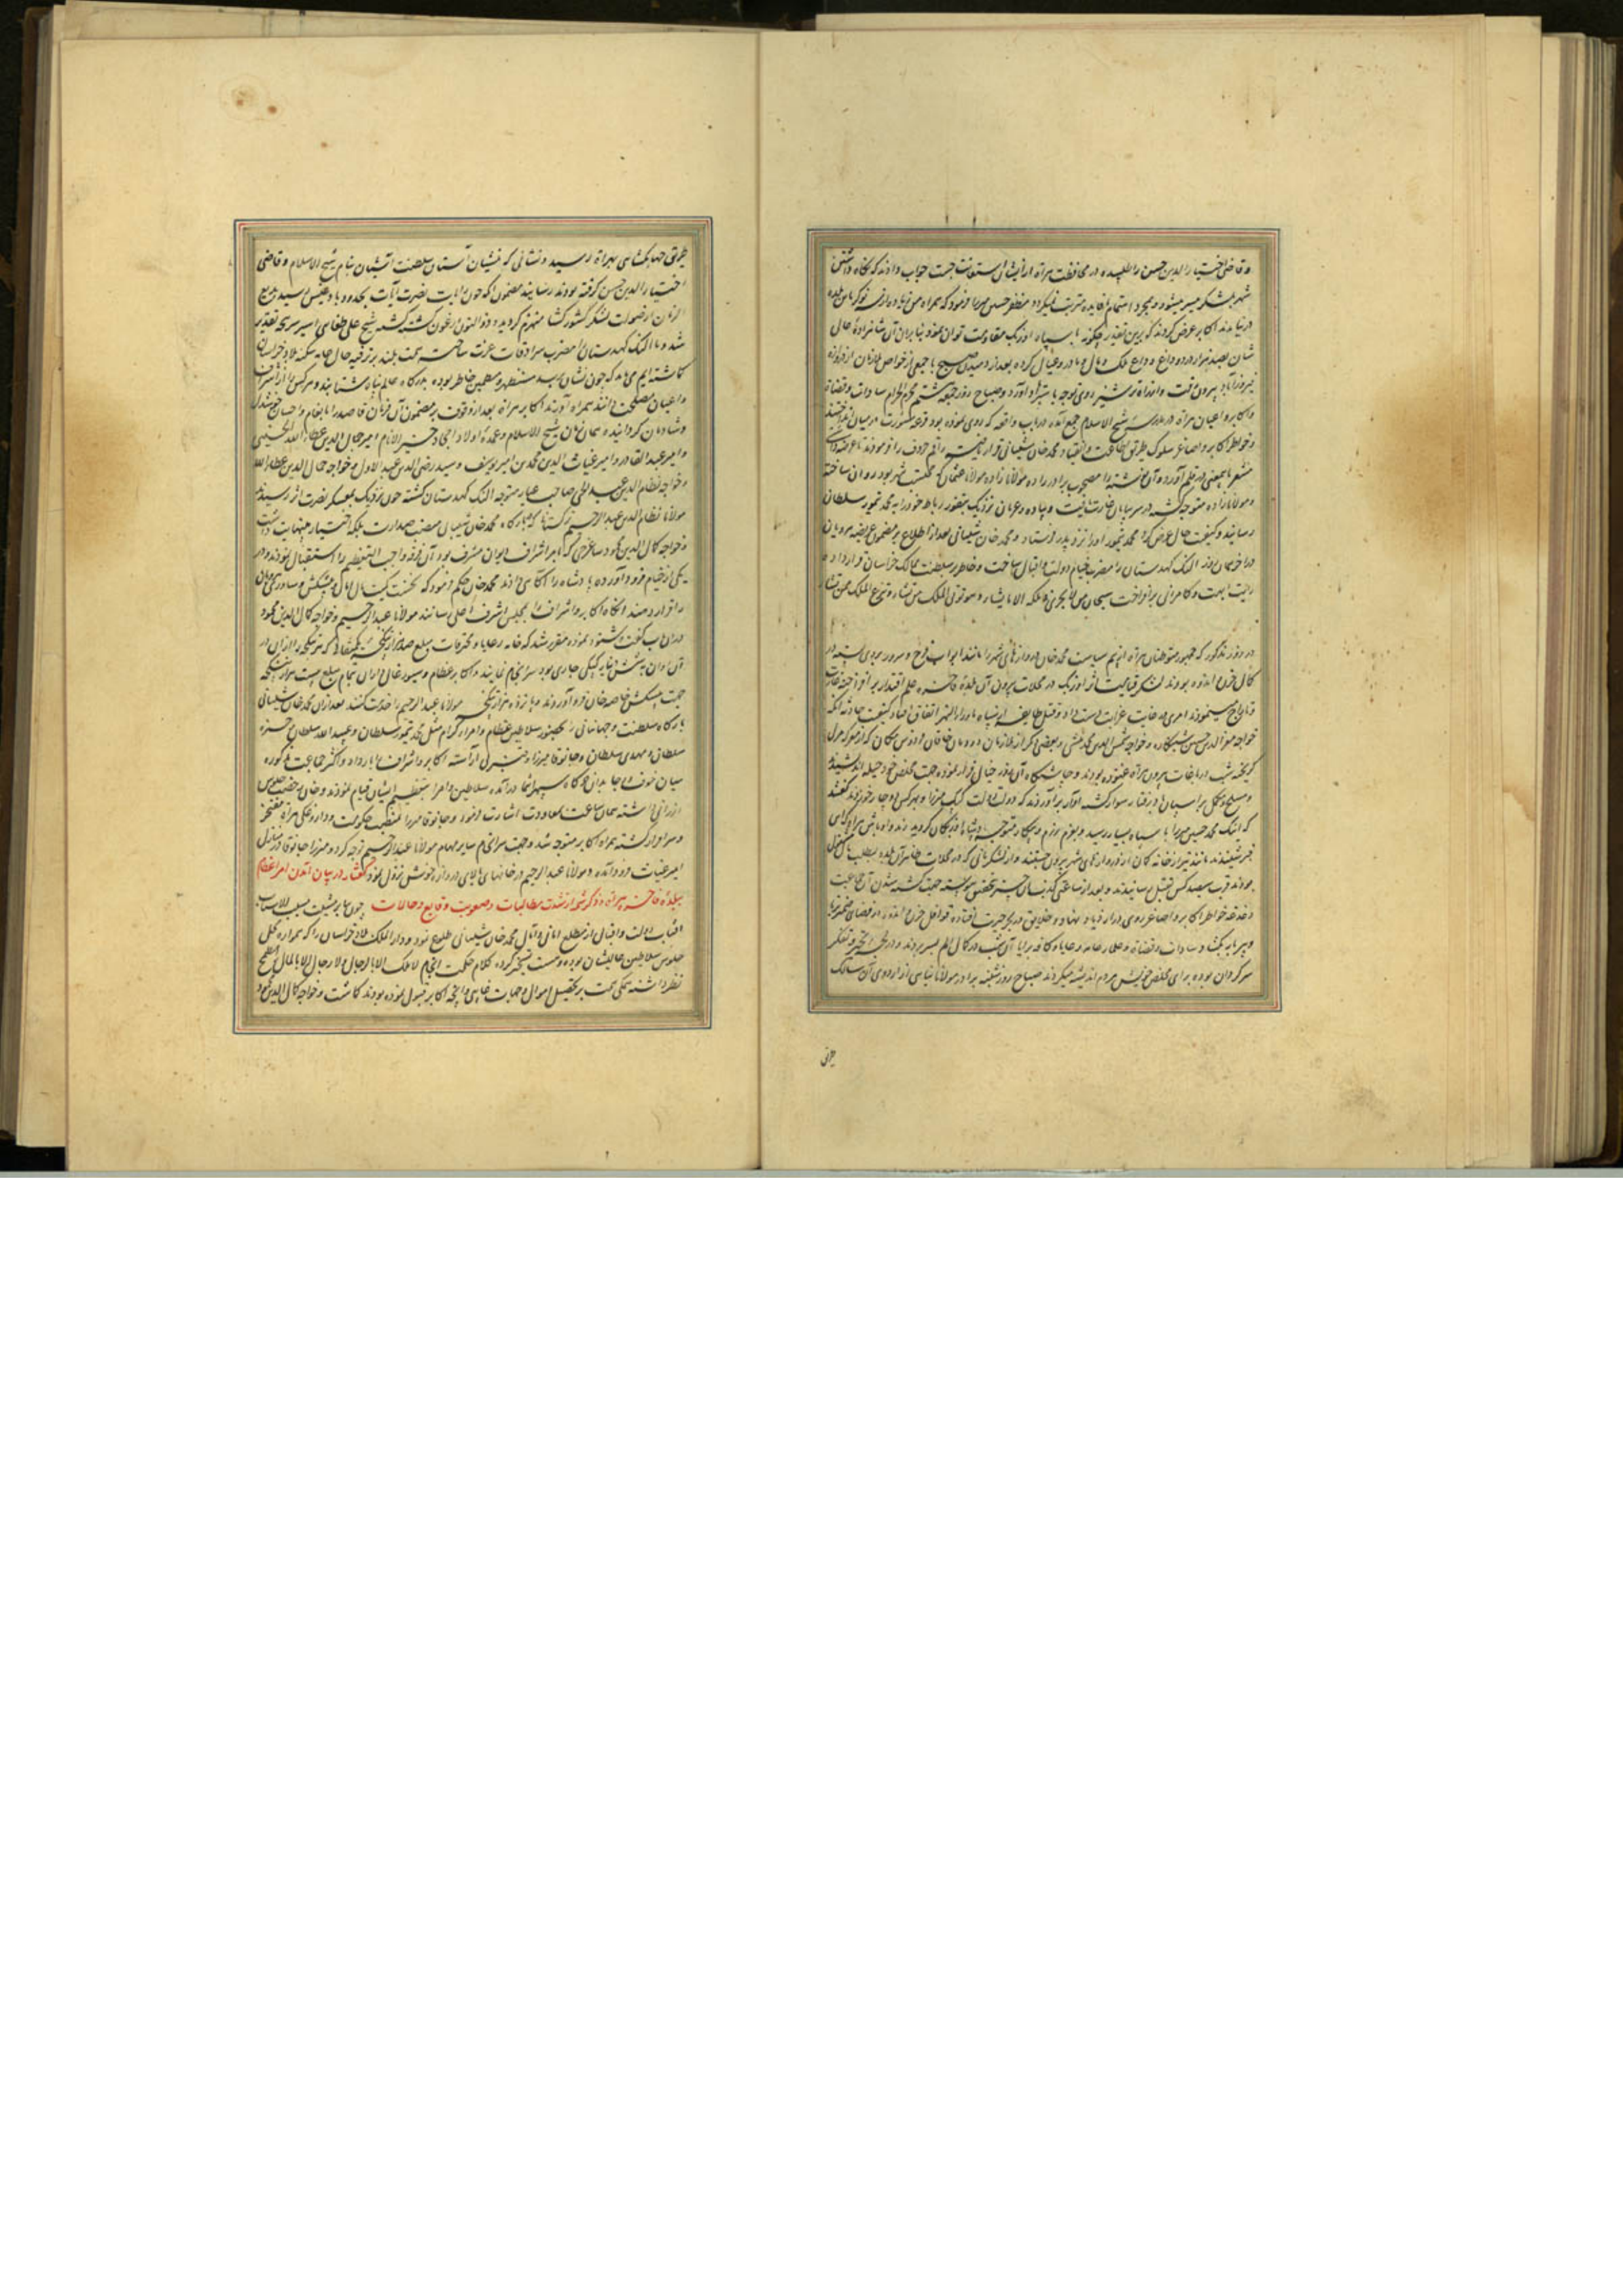 و قاضی اختیار الدین حسن را طلبیده در محافظت هراة از ایشان استعانت جست جواب دادند که نگاه داشتن
شهر بلشکر میسر میشود و بمجرد اهتمام ما فایده مترتب نمیکردد مظفر حسین میرزا فرمود که همراه من زیاده از
در نیامدند اکابر عرض کردند که برین تقدیر چگونه با سپاه اوزبک مقاومت توان نمود بنا بران آن شاهزاده حال
شان بصد هزار درد و داغ وداع ملک و مال و مادر و عیال کرده بعد از دمیدن صبح با جمعی از خواص ملازمان از دروازه
فیروزآباد بیرون رفت و از راه ترشیز روی توجه باسترآباد آورد و صباح روز جمعه هشتم محرم الحرام سادات و قضاة
و اکابر و اعیان هراة در مدرسه شیخ الاسلام جمع آمده در باب واقعه که روی نموده بود قرعه مشورت در میان انداختند
و خواطر اکابر و اصاغر بسلوک طریق اطاعت و انقیاد محمد خان شیبانی قرار یافته راقم حروف را فرمودند تا عرضه داشتی
مشعر باین معنی در قلم آورد و آن نوشته را مصحوب برادرزاده مولانا عثمان که محتسب شهر بود روان ساختند
و مولانازاده متوجه گشته در سر بیابان غارت یافت و پیاده و عریان نزدیک بتقوز رباط خود را به محمد تیمور سلطان
رسانید و کیفیت حال عرض کرد محمد تیمور او را نزد پدر فرستاد و محمد خان شیبانی بعد از اطلاع بر مضمون عریضه هرویان
در آخر همان روز النک کهدستان را مضرب خیام دولت و اقبال ساخت و خاطر بر سلطنت ممالک خراسان قرار داده
رایت ابهت و کامرانی برافراخت سبحان من لا یجری فی ملکه الا ما یشاء و هو تؤتی الملک من تشاء و تنزع الملک ممن تشاء
در روز مذکور که جمهور متوطنان هراة از بیم سیاست محمد خان دروازه‌های شهر را مانند ابواب فرح و سرور بروی بسته در
کمال حزن و اندوه بودند لشکر قیامت اثر اوزبک در محلات بیرون آن بلده فاخره علم اقتدار برافراخته غارت
و تاراج مینمودند امری در غایت غرابت دست داد و قتل طایفه از سپاه ماوراء النهر اتفاق افتاد کیفیت حادثه آنکه
خواجه معز الدین حسن شبکاره و خواجه شمس الدین محمد منشی و بعضی دیگر از ملازمان دودمان خاقان فردوس مکان که از معرکه مرل
گریخته شب در باغات بیرون هراة غنوده بودند و
و مسلح و مکمل بر اسپان باد رفتار سوار گشته آواز برآوردند که دولت دولت کپک میرزا و بهر کس دوچار خوردند گفتند
که اینک محمد حسین میرزا با سپاه بسیار رسید و بعزم رزم و پیکار متوجه
خبر شنیدند مانند تیر از خانه کمان از دروازه‌های شهر بیرون جستند و از لشکریانی که در محلات ظاهر آن بلده بطلب
بودند قرب سیصد کس بقتل رسانیدند و بعد از ساعتی کذب آن خبر بتحقیق پیوسته جهت کشته شدن آن جماعت
دغدغه بخواطر اکابر و اصاغر روی در ازدیاد نهاد و خلایق در بحر حیرت افتاده قوافل حزن و اندوه از فضای
و پیر ما به یکشاد سادات و قضاة و علماء و عامه رعایا و کافه برایا آن شب در کمال الم بسر بردند و در لجه تحیر و تفکر
سرگردان بوده برای مخلص خویش هر دم اندیشه میکردند صباح روز شنبه برادر مولانا بنایی از اردوی آن سالک
طریق
طریق جهانگشایی بهراة رسید و نشانی که منشیان آستان سلطنت آشیان بنام شیخ الاسلام و قاضی
اختیار الدین حسن گرفته بودند رسانید مضمون آنکه چون رایات نصرت آیات بحدود بادغیس رسید بدیع
الزمان از صولت لشکر کشورگشا منهزم گردیده ذوالنون ارغون کشته گشت شیخ علی طغایی اسیر سرپنجه تقدیر
شد و ما النک کهدستان را مضرب سرادقات عزت ساخته همت بلند بر ترفیه حال عامه سکنه بلاد خراسان
گماشته‌ایم می‌باید که چون نشان برسد مستظهر و مطمین خاطر بوده بدرگاه عالم پناه شتابند و هر کس را از اشراف
و اعیان مصلحت دانند همراه آورند اکابر هراة بعد از وقوف بر مضمون آن فرمان قاصد را بانعام و احسان خوشدل
و شادمان گردانیده همان زمان شیخ الاسلام و عمده اولاد امجاد خیر الانام امیر جمال الدین عطاء الله الحسینی
و امیر عبد القادر و امیر غیاث الدین محمد بن امیر یوسف و سید رضی الدین عبد الاول و خواجه جمال الدین عطاء الله
و خواجه نظام الدین عبد الحی صاحب عیار متوجه النک کهدستان گشته چون نزدیک بمعسکر نصرت اثر رسیدند
مولانا نظام الدین عبد الرحیم ترکستانی که ببارگاه محمد خان شیبانی منصب صدارت بلکه اختیار مهمات داشت
و خواجه کمال الدین محمود ساغرجی که بامر اشراف دیوان مشرف بود آن فرقه واجب التعظیم را استقبال نمودند و در
یکی از خیام فرود آورده پادشاه را آگاهی دادند محمد خان حکم فرمود که نخست یکساله مال و پیشکش و ساوری هرویان
را قرار دهند آنگاه اکابر و اشراف را بمجلس اشرف اعلی رسانند مولانا عبد الرحیم و خواجه کمال الدین محمود
در ان باب گفت و شنود نموده مقرر شد که عامه رعایا و محترفات مبلغ صد هزار تنگچه یکمثقالی که هر تنگچه را از ان در
آن زمان به شش دینار کپکی جاری بود سرانجام نمایند و اکابر عظام و سیورغال داران تمام مبلغ بیست هزار تنگچه
جهت پیشکش خاصه خان فرود آوردند و پانزده هزار تنگچه مولانا عبد الرحیم را خدمت کنند بعد از ان محمد خان شیبانی
بارگاه سلطنت و جهانبانی را بحضور سلاطین عظام و امراء کرام مثل محمد تیمور سلطان و عبید الله سلطان و حمزه
سلطان و مهدی سلطان و جانوقا میرزا و قنبر آراسته اکابر و اشراف را بار داد و اکثر جماعت مذکوره
میان خوف و رجا بدان درگاه سپهر انتما درآمده سلاطین و امرا بتعظیم ایشان قیام نمودند و خان رخصت جلوس
ارزانی داشته همان ساعت بمعاودت اشارت فرمود و جانوقا میرزا بمنصب حکومت و داروغگی هراة مفتخر
و سرافراز گشته همراه اکابر متوجه شد و جهت سرانجام سایر مهام مولانا عبد الرحیم توجه کرد و میرزا جانوقا در منازل
امیر غیاث فرود آمده و مولانا عبد الرحیم در خانهای بالای دروازه خوش نزول نمود گفتار در بیان آمدن امراء عظام
ببلده فاخره هراة و ذکر شمه از شدت مطالبات و صعوبت وقایع و حالات چون بنا بر مشیت مسبب الاسباب
آفتاب دولت و اقبال از مطلع امانی و آمال محمد خان شیبانی طلوع نمود و دارالملک بلاد خراسان را که همواره محل
جلوس سلاطین عالیشان بوده بدست تسخیر کرده کلام حکمت انجام لا ملک الا بالرجال و لا رجال الا بالمال مطمح
نظر داشته همگی همت بر تحصیل اموال و جهات و آنچه اکابر قبول نموده بودند گماشت و خواجه کمال الدین محمود